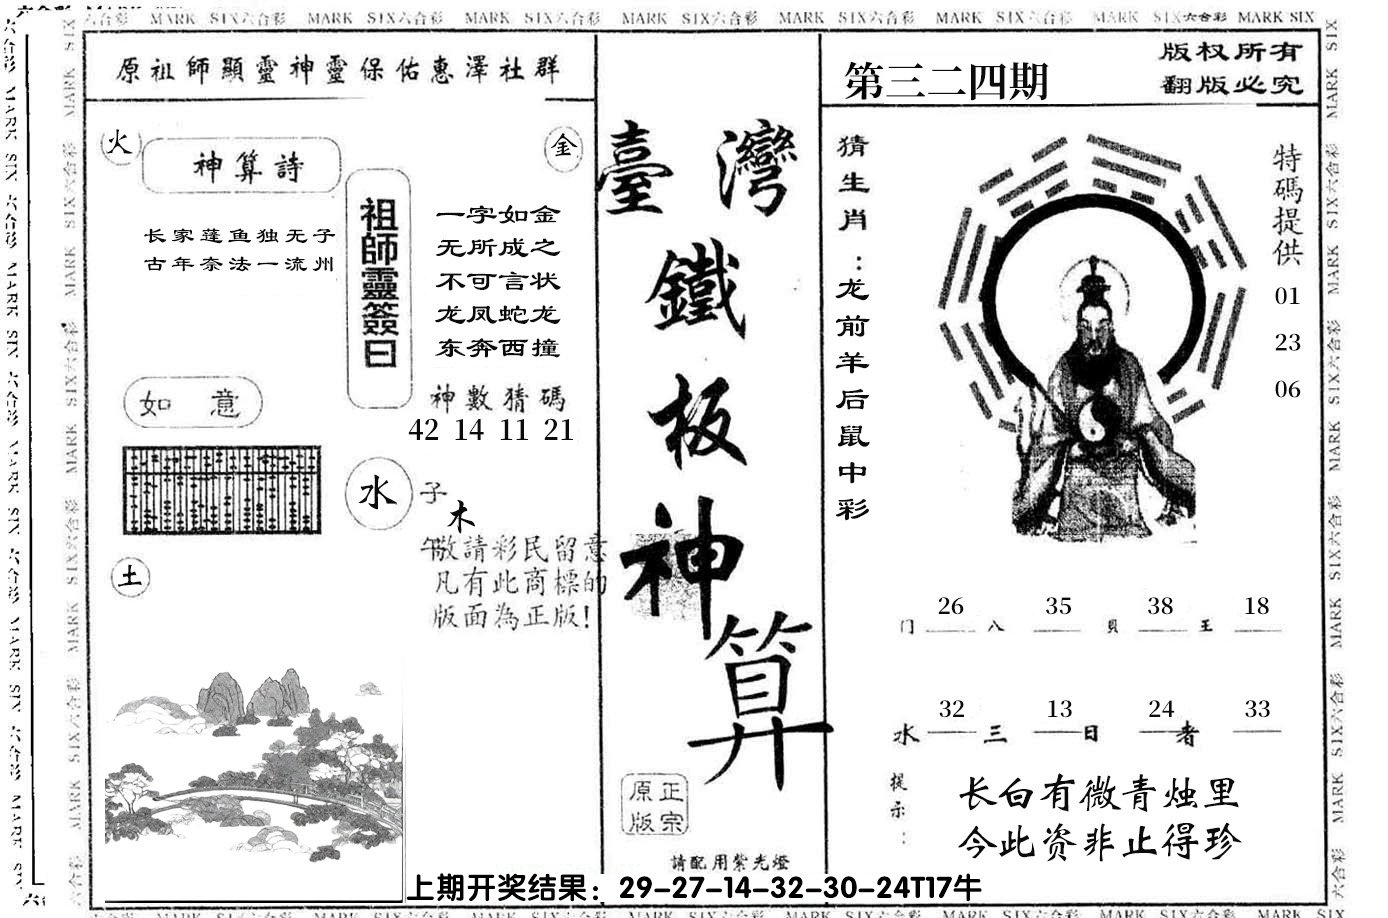 六合彩 MARK SIX六合彩 MARK SIX六合彩 MARK SIX六合彩 MARK SIX六合彩 MARK SIX六合彩 MARK SIX六合彩 MARK SIX六合彩 MARK SIX
原祖師顯靈神靈保佑惠澤社群
火
金
神算詩
长家蓬鱼独无子
古年奈法一流州
祖師靈簽曰
一字如金
无所成之
不可言状
龙凤蛇龙
东奔西撞
神數猜碼
42 14 11 21
如意
水
子
木
午
土
敬請彩民留意
凡有此商標的
版面為正版!
臺灣
鐵
板
神
算
正宗
原版
請配用紫光燈
第三二四期
版权所有
翻版必究
猜生肖:龙前羊后鼠中彩
特碼提供
01
23
06
门 26 八 35 貝 38 王 18
水 32 三 13 日 24 者 33
提示:
长白有微青烛里
今此资非止得珍
上期开奖结果：29-27-14-32-30-24T17牛